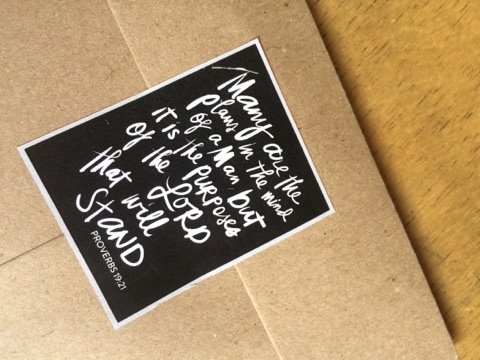 Many are the
plans in the mind
of a Man, but
it is the PURPOSES
of the LORD
that will
STAND
PROVERBS 19:21